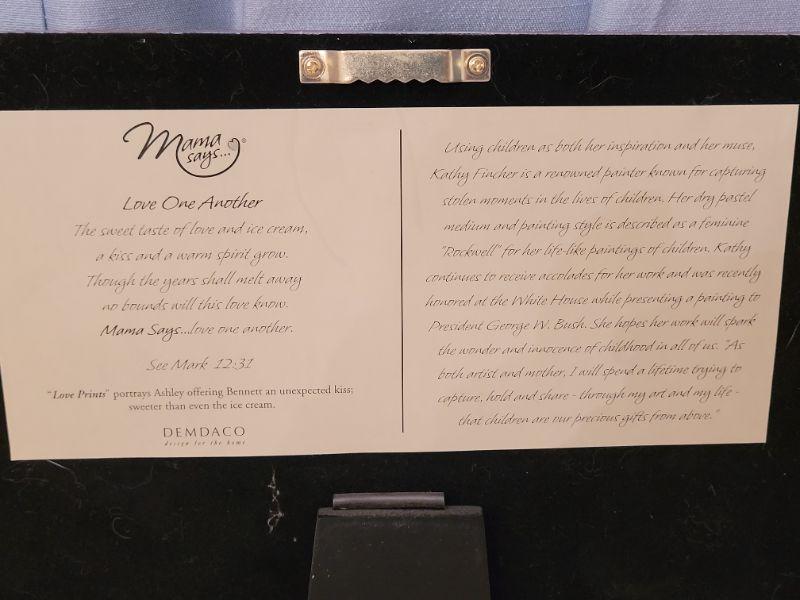 Mama says...®
Love One Another
The sweet taste of love and ice cream,
a kiss and a warm spirit grow.
Though the years shall melt away
no bounds will this love know.
Mama Says...love one another.
See Mark 12:31
"Love Prints" portrays Ashley offering Bennett an unexpected kiss;
sweeter than even the ice cream.
DEMDACO
design for the home
Using children as both her inspiration and her muse,
Kathy Fincher is a renowned painter known for capturing
stolen moments in the lives of children. Her dry pastel
medium and painting style is described as a feminine
"Rockwell" for her life-like paintings of children. Kathy
continues to receive accolades for her work and was recently
honored at the White House while presenting a painting to
President George W. Bush. She hopes her work will spark
the wonder and innocence of childhood in all of us. "As
both artist and mother, I will spend a lifetime trying to
capture, hold and share - through my art and my life -
that children are our precious gifts from above."